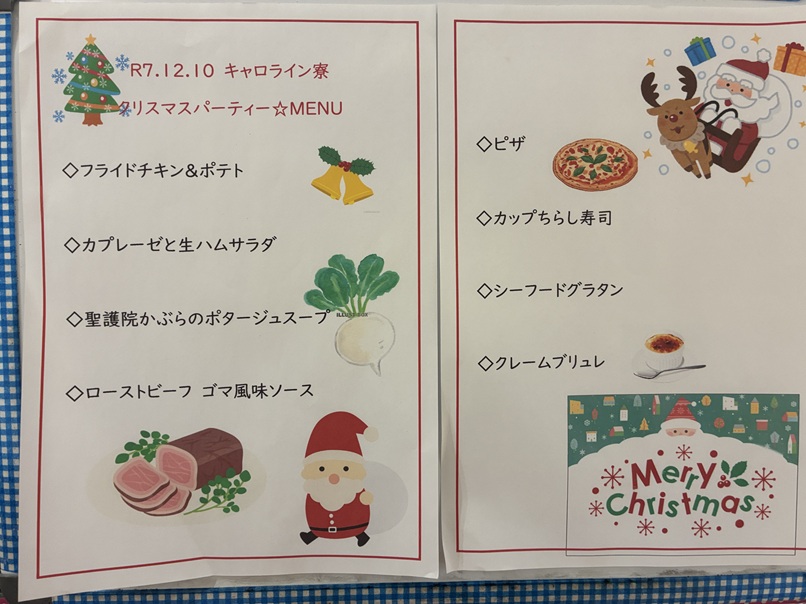 R7.12.10 キャロライン寮
クリスマスパーティー☆MENU
◇フライドチキン&ポテト
◇カプレーゼと生ハムサラダ
◇聖護院かぶらのポタージュスープ
◇ローストビーフ ゴマ風味ソース
◇ピザ
◇カップちらし寿司
◇シーフードグラタン
◇クレームブリュレ
Merry
Christmas